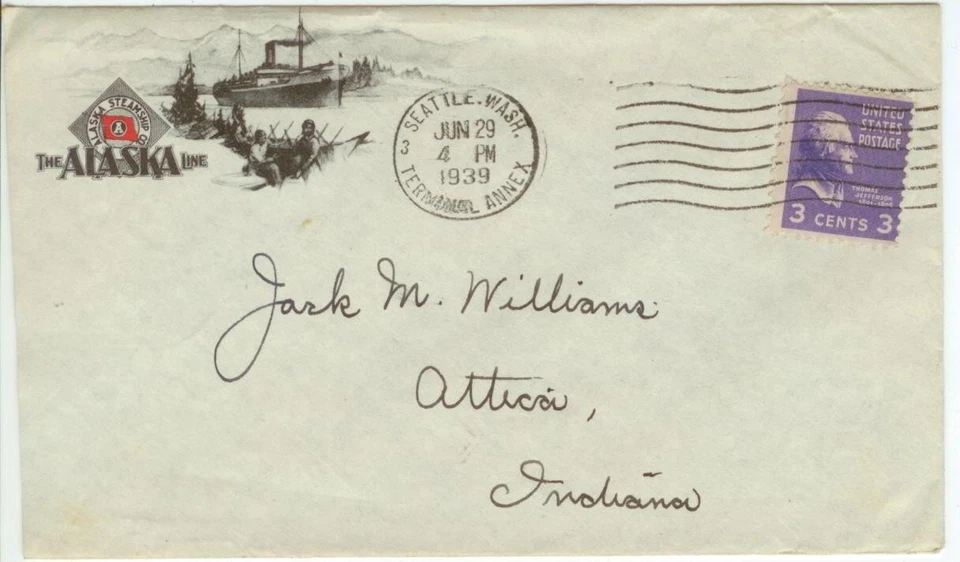 ALASKA STEAMSHIP CO.
A
THE ALASKA LINE
SEATTLE, WASH.
JUN 29
3 4 PM
1939
TERMINAL ANNEX
UNITED
STATES
POSTAGE
THOMAS
JEFFERSON
1801-1809
3 CENTS 3
Jack M. Williams
Attica,
Indiana